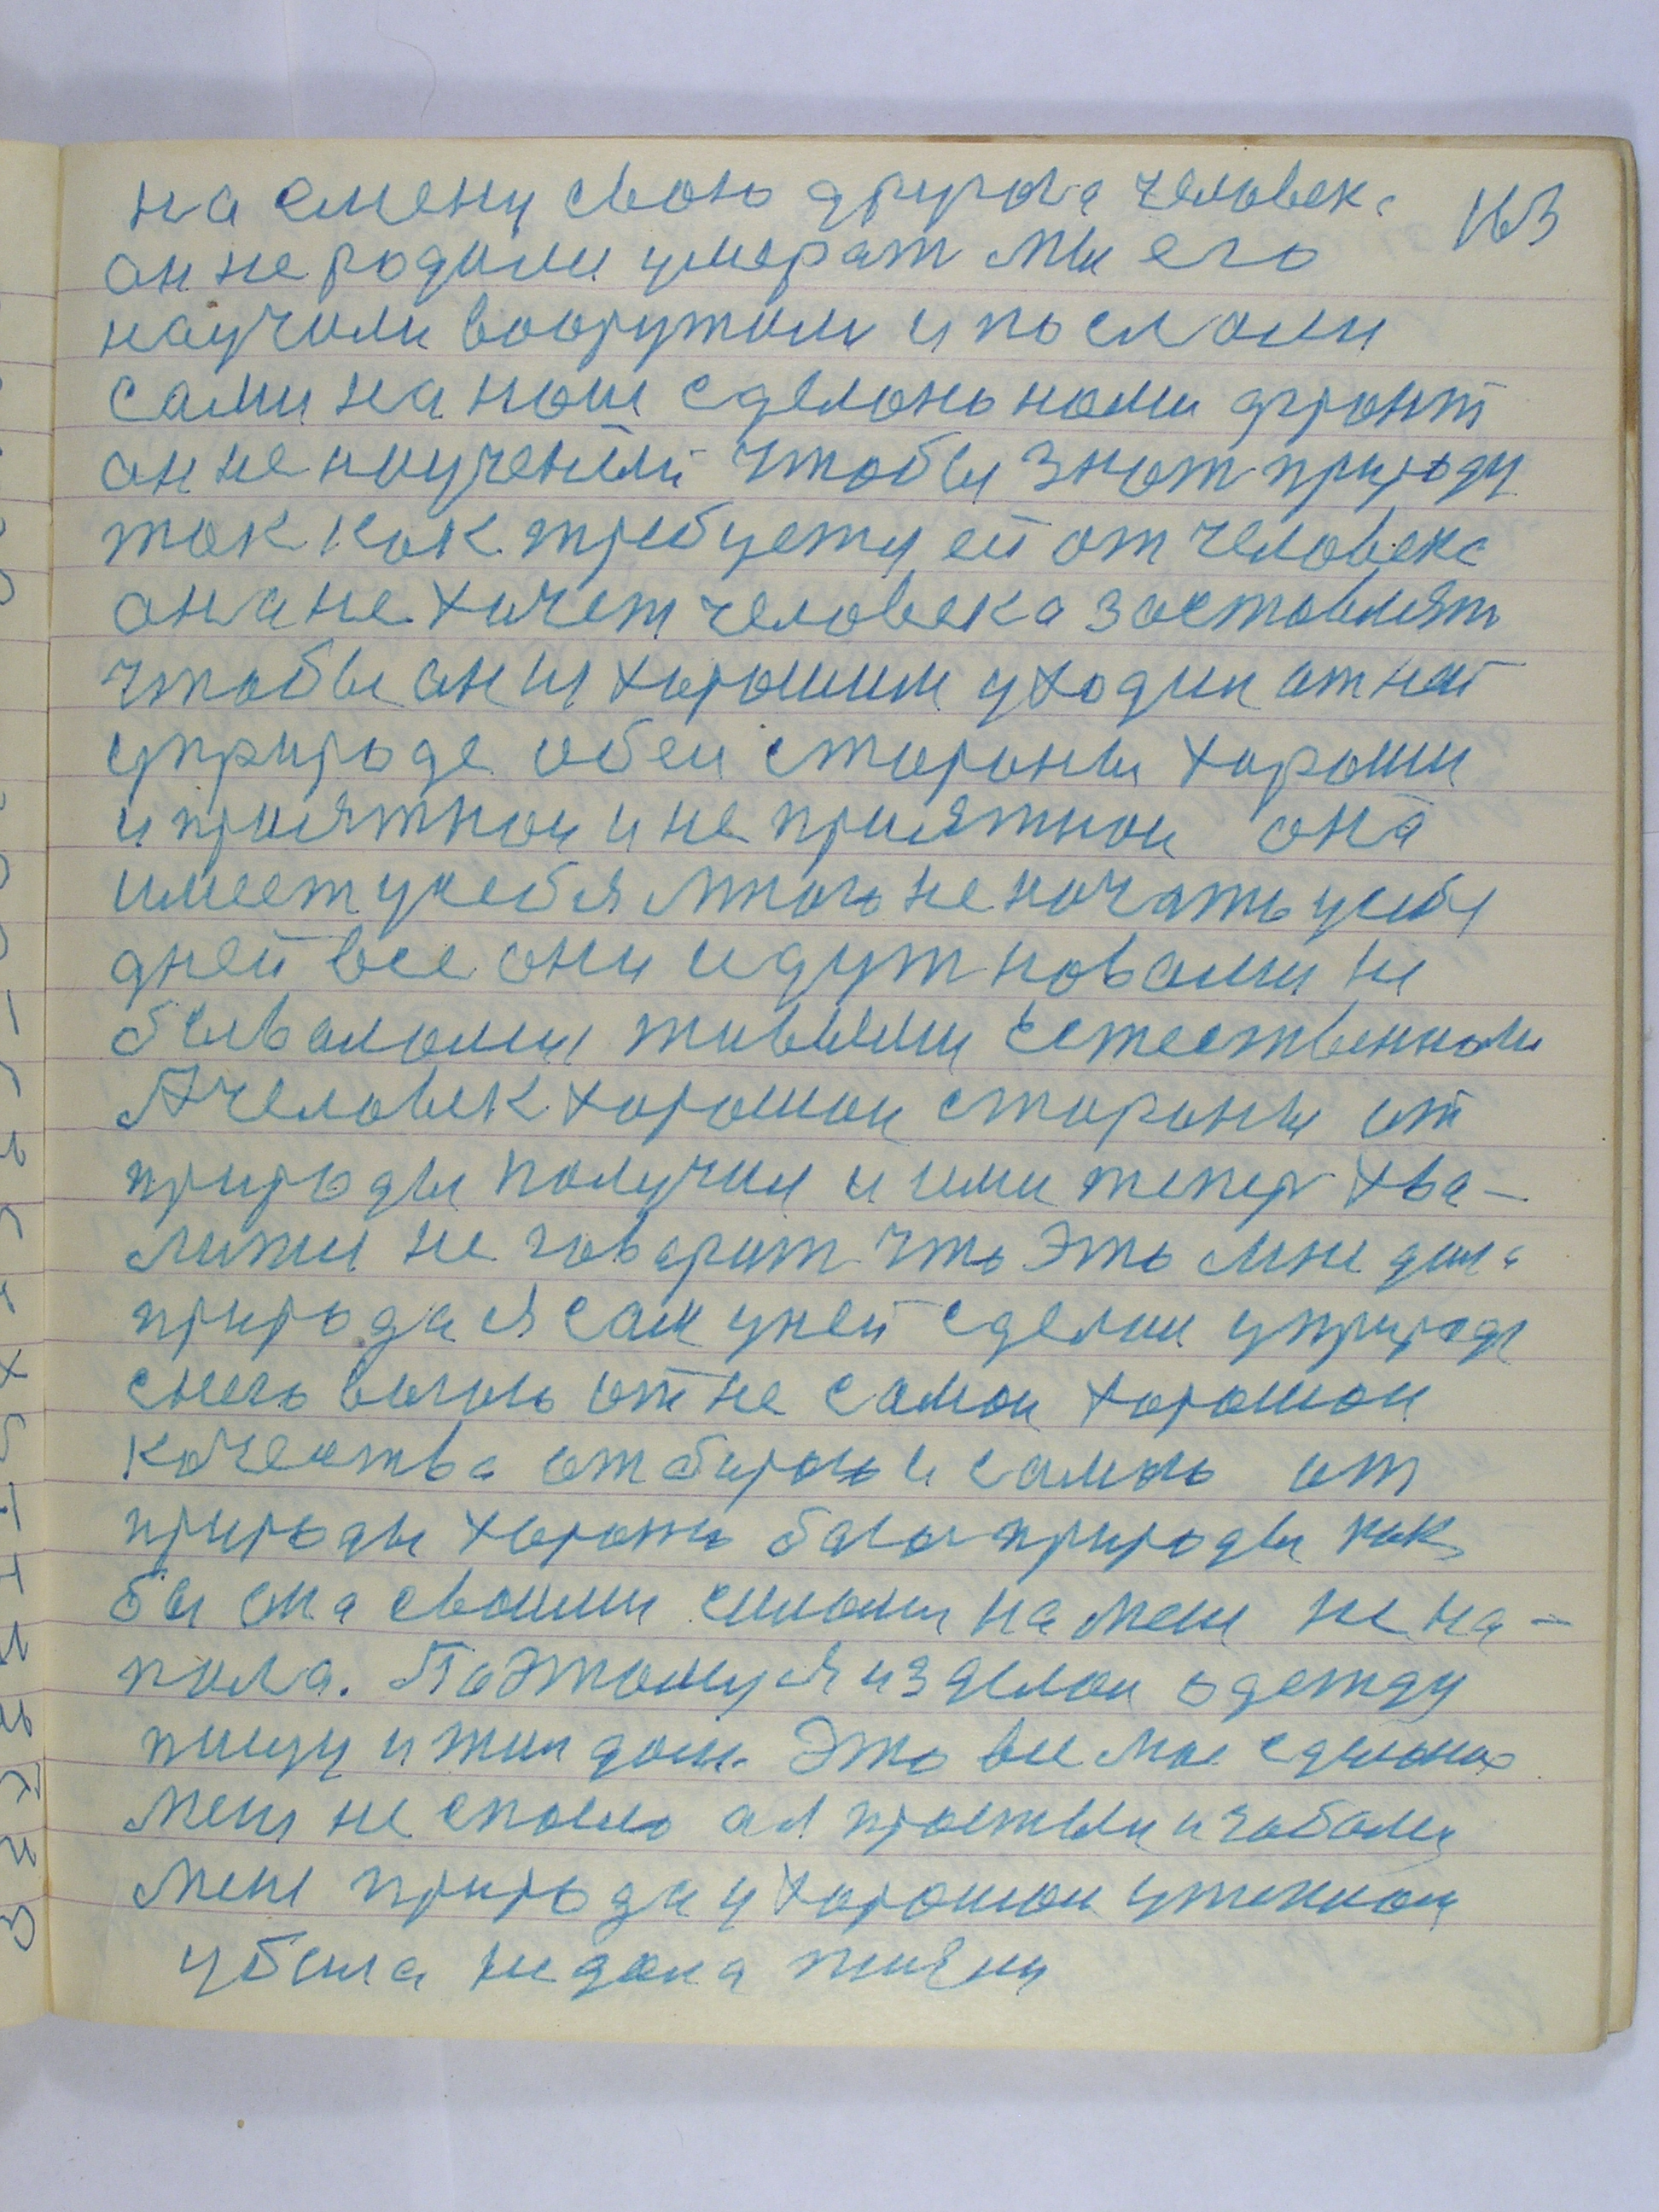 на смену свою другога человека 163
он не родили умерат мы его
научили вооружили и послали
сами на наш сделоно нами фронт
он не научений чтобы знат природу
так как требуетя ей от человека
она не хочет человека заставлять
чтобы он ш хорошим уходил от ней
у природе обеи стороны хороши
и приятнои и не приятнои она
имеет у себя много не начать у себя
дней все они идут новами не
бывалами живыми естественнами
А человек хорошои стороны от
природы получил и ими тепер хва-
литя не говарит что это мне дала
природа я сам у ней сделал у природе
снего вочого от не самои хорошои
качества отбираю и самаю от
природы хорошо бага природы как
бы она своими силами на меня не на-
пала. Поэтому я изделал одежду
пищу и жил дом. Это все мое сделоно
меня не спасло а я простыл и забалел
мене природа у хорошом у теплом
убила не дала жизни